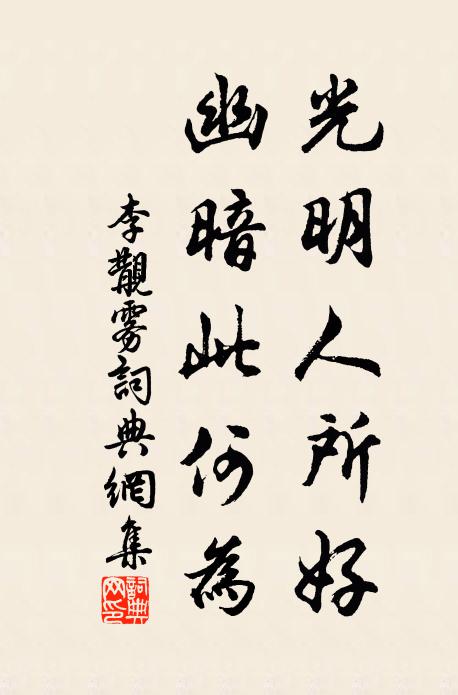 光明人所好
幽暗此何為
李覯雾詞典網集
詞典网印